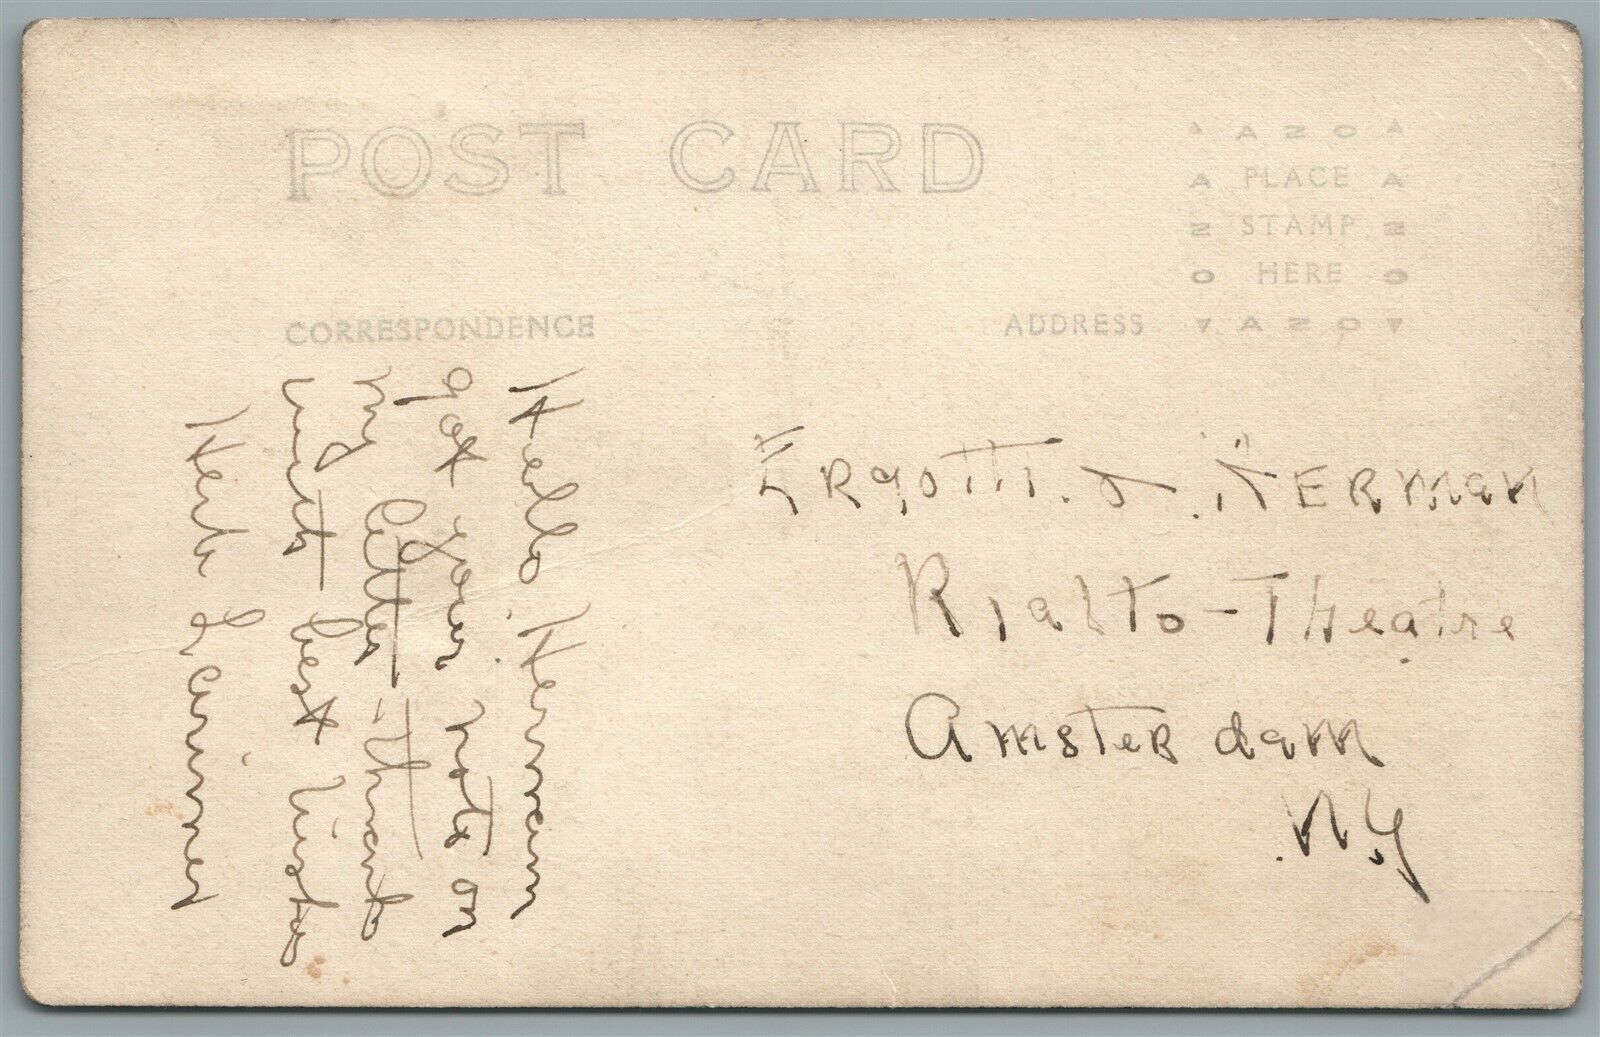 POST CARD
AZO
PLACE
STAMP
HERE
AZO
CORRESPONDENCE
ADDRESS
Hello Herman
got your note on
my letter. Thanks
with best wishes
Herb
Ergotti. & Herman
Rialto-Theatre
Amsterdam
N.Y